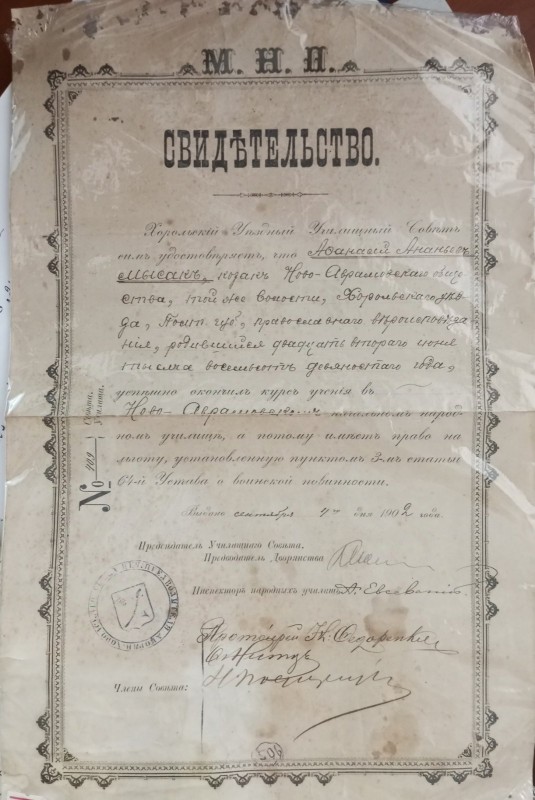 М. Н. П.
СВИДѢТЕЛЬСТВО.
Хорольскій Уѣздный Училищный Совѣтъ
симъ удостовѣряетъ, что Аѳанасій Ананьевъ
Мысакъ, козакъ Ново-Аврамовскаго обще
ства, той же волости, Хорольскаго уѣз
да, Полт. губ., православнаго вѣроисповѣда
нія, родившійся двадцать втораго іюня
тысяча восемьсотъ девяностаго года,
успѣшно окончилъ курсъ ученія въ
Ново-Аврамовскомъ начальномъ народ-
номъ училищѣ, а потому имѣетъ право на
льготу, установленную пунктомъ 3-мъ статьи
64-й Устава о воинской повинности.
Выдано сентября 4 дня 1902 года.
№ 409
Предсѣдатель Училищнаго Совѣта,
Предводитель Дворянства
Инспекторъ народныхъ училищъ А.
Члены Совѣта: